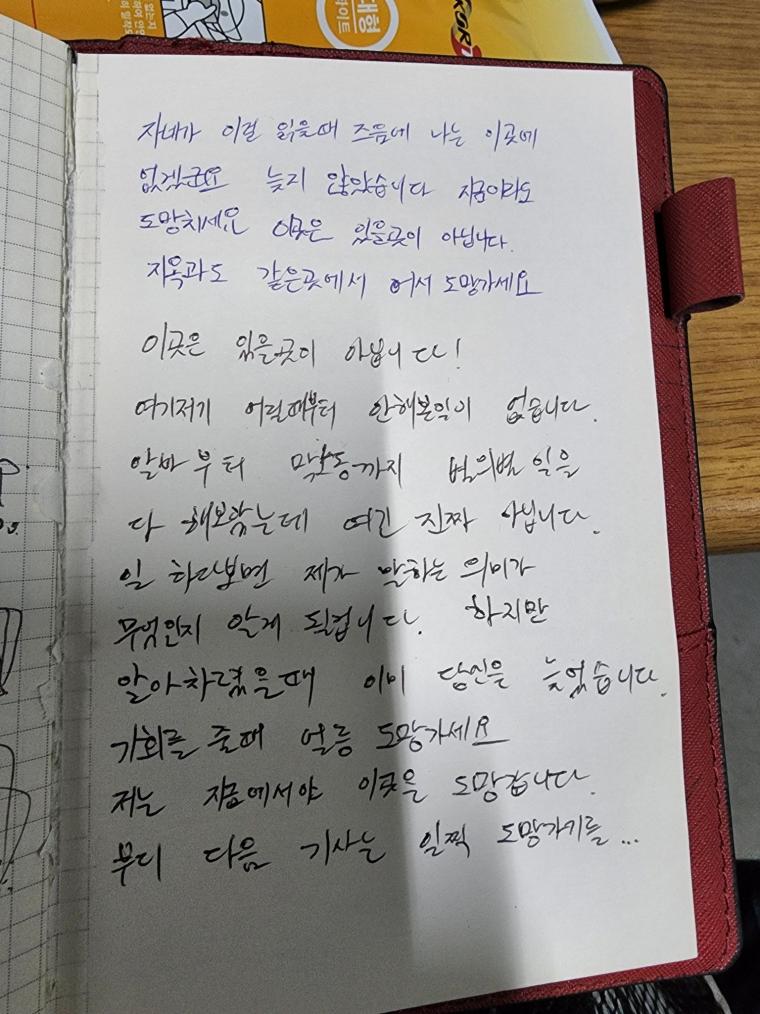 대형
KORI
자네가 이걸 읽을때 즈음에 나는 이곳에
없겠군요 늦지 않았습니다 지금이라도
도망치세요 이곳은 있을곳이 아닙니다.
지옥과도 같은곳에서 어서 도망가세요
이곳은 있을곳이 아닙니다!
여기저기 어릴때부터 안해본일이 없습니다.
알바부터 막노동까지 별의별 일을
다 해보았는데 여긴 진짜 아닙니다.
일 하다보면 제가 말하는 의미가
무엇인지 알게 될겁니다. 하지만
알아차렸을때 이미 당신은 늦었습니다.
기회를 줄때 얼릉 도망가세요
저는 지금에서야 이곳을 도망갑니다.
부디 다음 기사는 일찍 도망가기를...